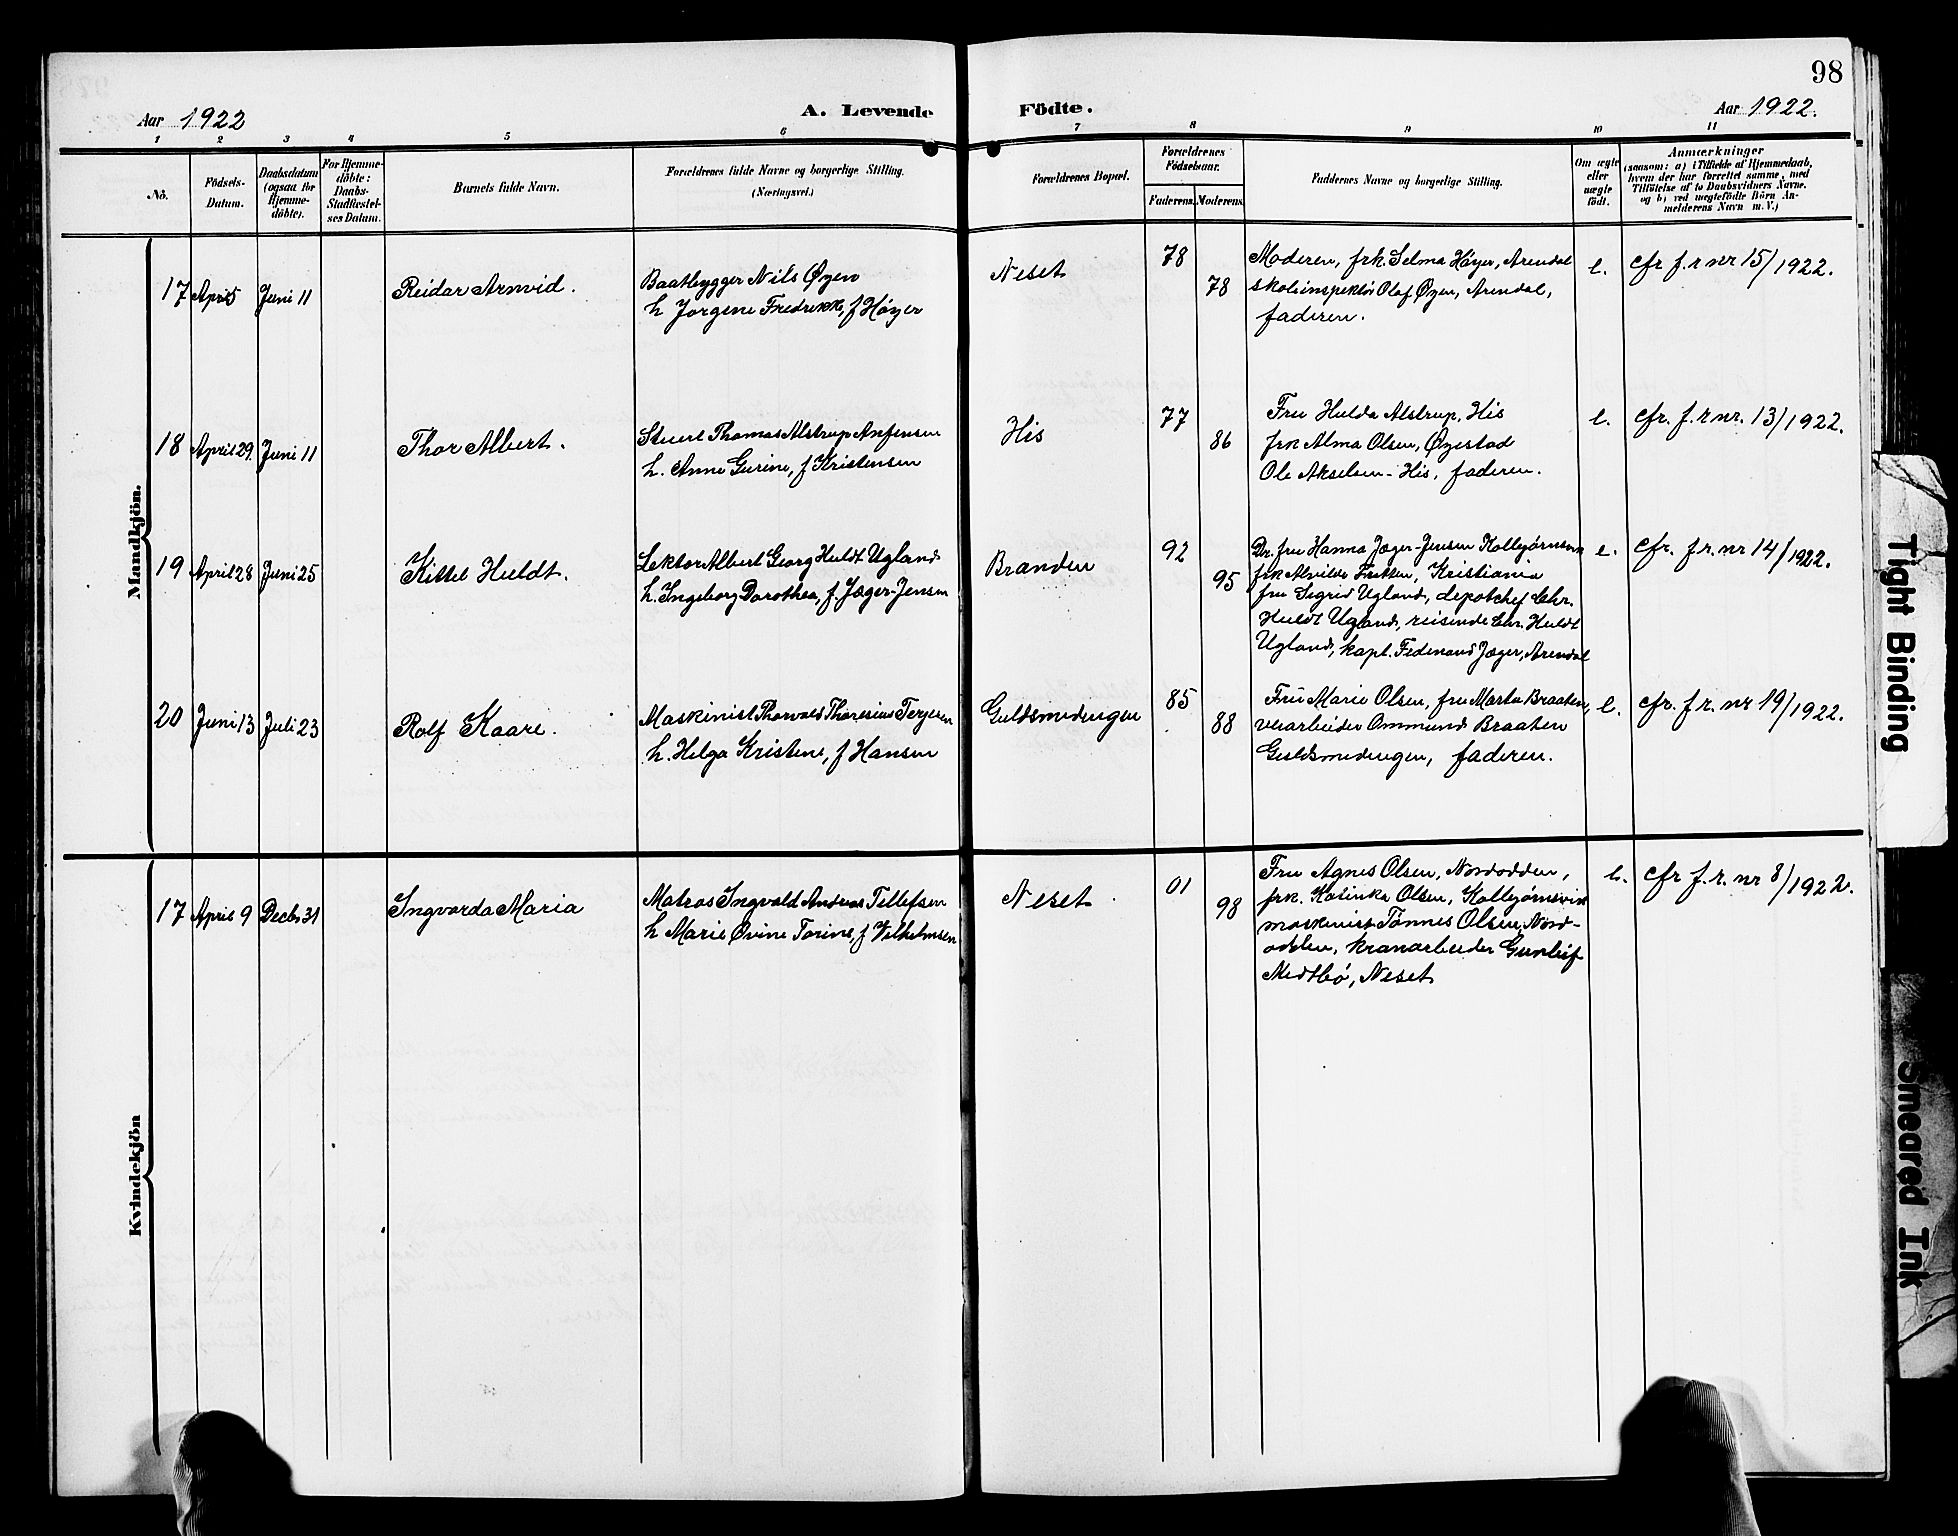 98
Aar 1922
A. Levende Födte.
Aar 1922.
1 2 3 4 5 6 7 8 9 10 11
No.
Födsels-
Datum.
Daabsdatum
(ogsaa for
Hjemme-
döbte).
For Hjemme-
döbte:
Daabs-
Stadfæstel-
ses Datum.
Barnets fulde Navn.
Forældrenes fulde Navne og borgerlige Stilling.
(Næringsvei.)
Forældrenes Bopæl.
Forældrenes
Födselsaar.
Faderens. Moderens.
Faddernes Navne og borgerlige Stilling.
Om ægte
eller
uægte
födt.
Anmærkninger
(saasom: a) i Tilfælde af Hjemmedaab,
hvem der har forrettet samme, med
Tilföielse af to Daabsvidners Navne.
og b) ved uægtefödte Börn An-
melderens Navn m. V.)
Mandkjön.
17 April 5 Juni 11
Reidar Arnvid.
Baatbygger Nils Øyen
h. Jørgene Fredrikk, f Høyer
Neset
78
78
Moderen, frk. Selma Høyer, Arendal
skoleinspektør Olaf Øyen, Arendal,
faderen.
e.
cfr f. r nr 15/1922.
18 April 29. Juni 11
Thor Albert.
Stuert Thomas Alstrup Anfensen
h. Anne Gurine, f Kristensen
His
77
86
Fru Hulda Alstrup, His
frk Alma Olsen, Øyestad
Ole Akselsen - His, faderen.
e.
cfr. f. r nr. 13/1922.
19 April 28 Juni 25
Kittel Huldt.
Lektor Albert Georg Huldt Ugland
h. Ingeborg Dorothea, f. Jæger-Jensen
Branden
92
95
Dr. fru Hanna Jæger-Jensen Kolbjørnsvik
frk Alvilde Kristiania
fru Sigrid Ugland, depotchef Chr.
Huldt Ugland, reisende Chr. Huldt
Ugland, kapt. Ferdinand Jæger, Arendal
e.
cfr. f. r. nr 14/1922.
20 Juni 13 Juli 23
Rolf Kaare.
Maskinist Thorvald Thoresius Terjesen
h. Helga Kristene, f Hansen
Guldsmedengen
85
88
Fru Marie Olsen, fru Marta Braaten,
veiarbeider Ommund Braaten
Guldsmedengen, faderen.
e.
cfr. f. r. nr 19/1922.
Kvindekjön
17 April 9 Decbr 31
Ingvarda Maria
Matros Ingvald Andreas Tellefsen
h Marie Øvine Torine, f Vilhelmsen
Neset
01
98
Fru Agnes Olsen, Nordodden,
frk. Kasinka Olsen, Kolbjørnsvik
maskinist Tønnes Olsen, Nord-
odden, kranarbeider Gunleif
Medtbø, Neset
e.
cfr f. r. nr 8/1922.
Tight Binding
Smeared Ink